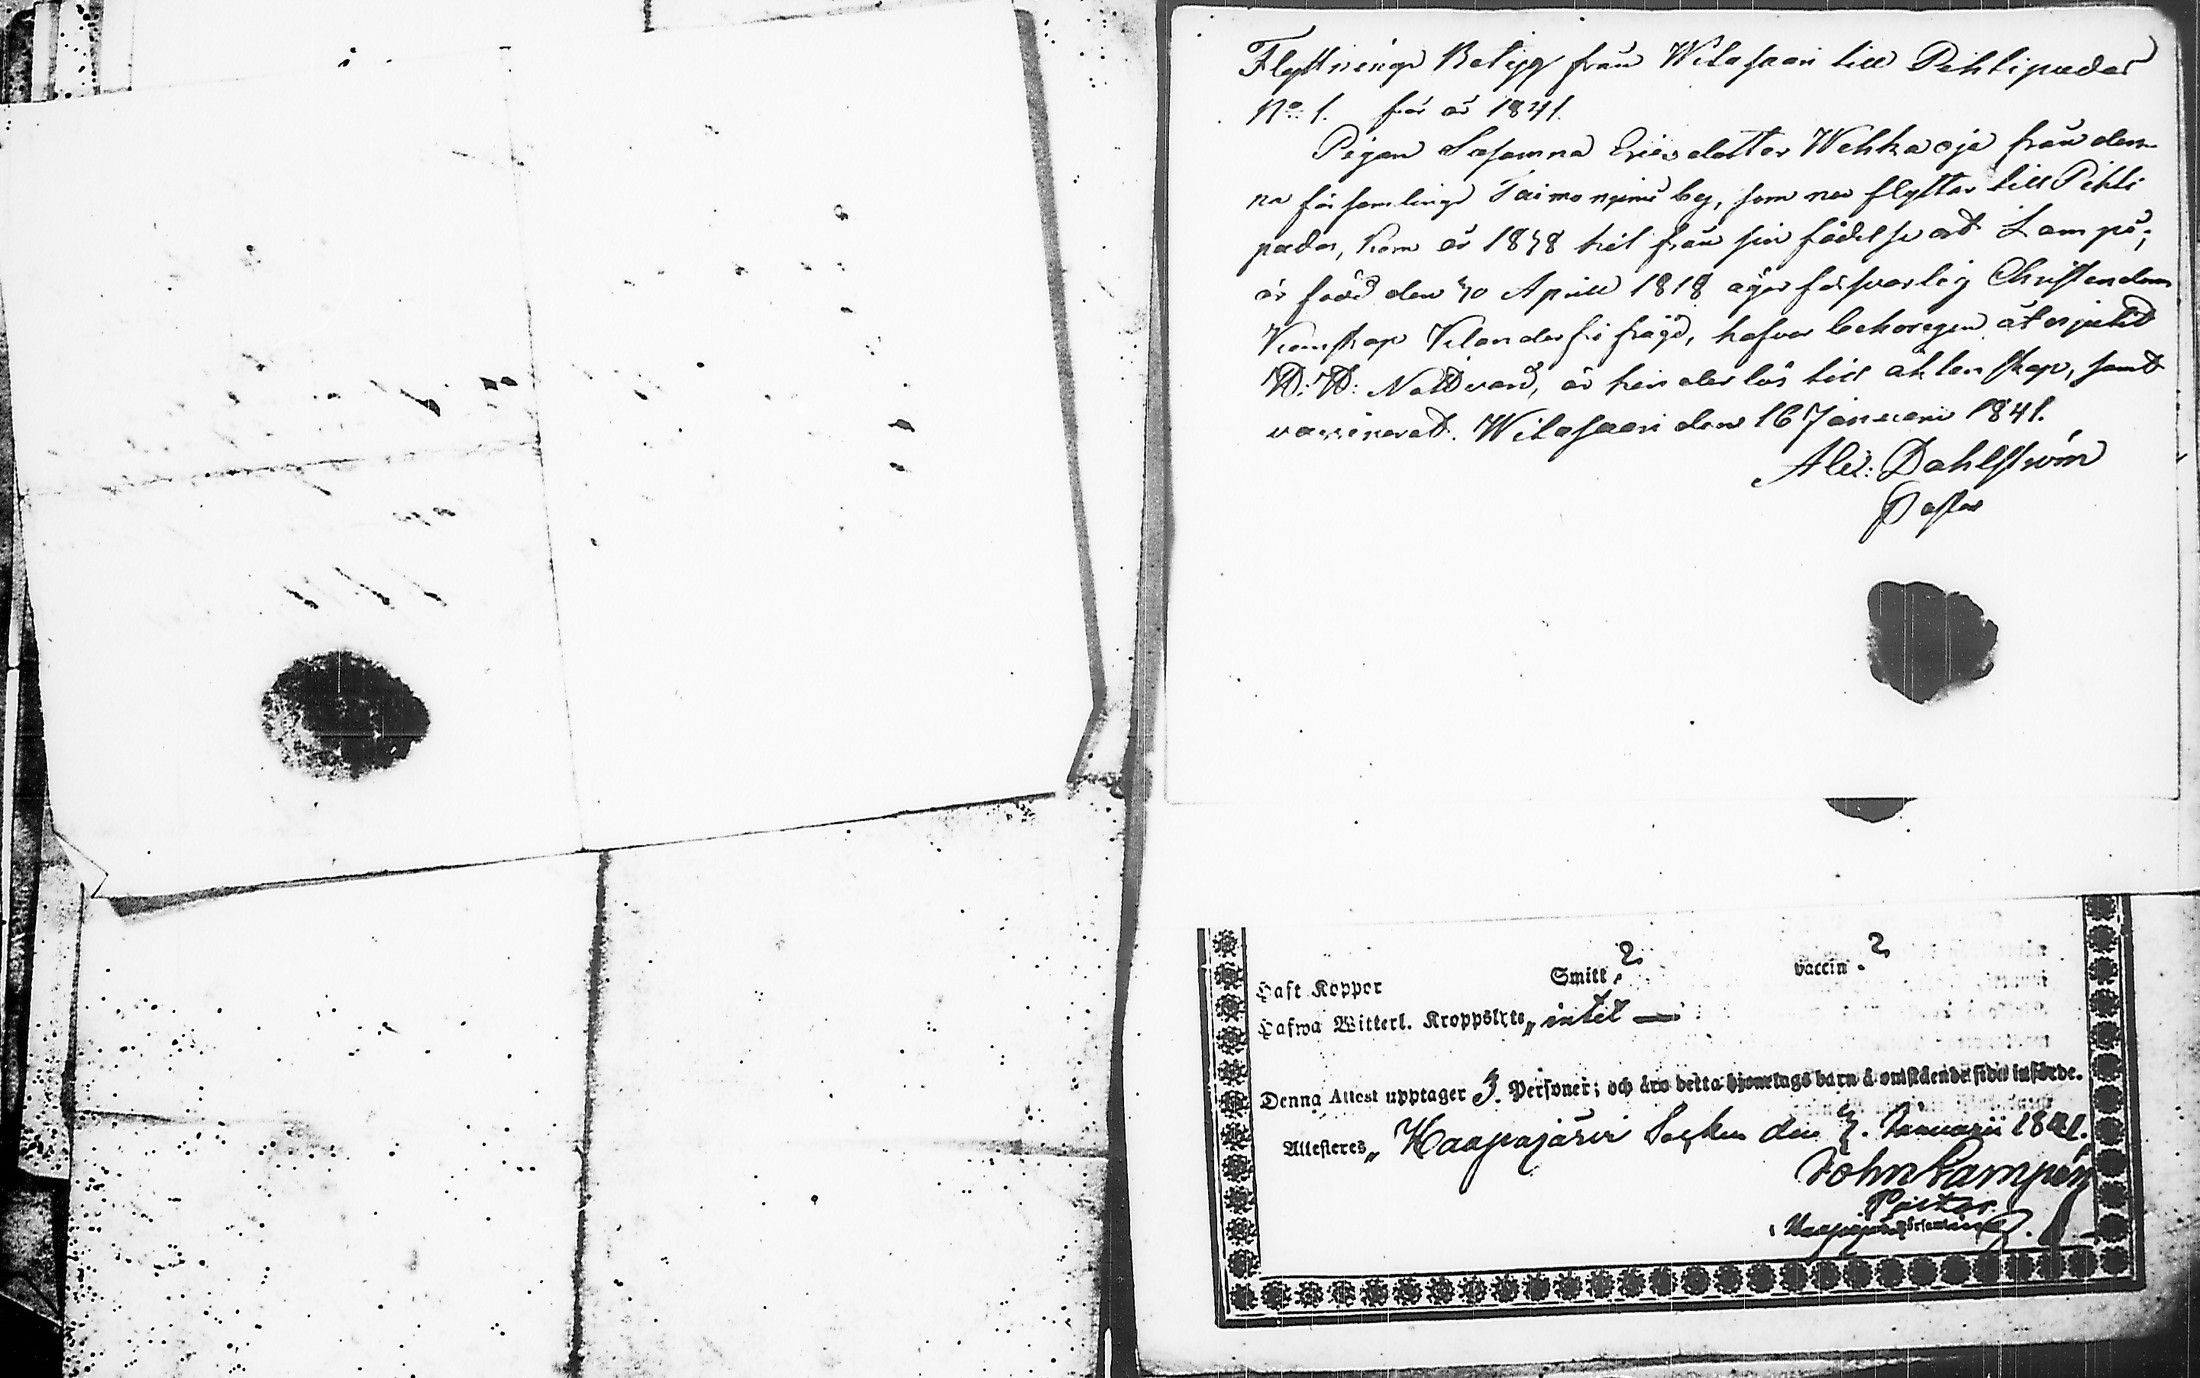 Flyttnings Betyg från Witasaari till Pihtipudas
No. 1. för år 1841.
Pigan Susanna Ericsdotter Wehkaoja från den-
na församlings Taimoniemi by, som nu flyttar till Pihti
pudas, kom år 1838 hit från sin födelse ort Lampis;
är född den 30 April 1818 äger försvarlig Christendoms
Kunskap Klanderfri frägd, hafver behörigen åtnjutit
H: H: Nattvard, är hinderlös till äktenskap, samt
vaccinerad. Witasaari den 16 Januari 1841.
Alex: Dahlström
Pastor
Haft Koppor Smitt. 2 vaccin. 2
Hafwa Witterl. Kroppslyte „ intet —
Denna Attest upptager 3. Personer; och äro detta hjonelags barn å omstående sida införde.
Attesteres „ Haapajärvi Socken den 7. Januarii 1841.
John Lampén
Pastor
i Haapajärvi församling.